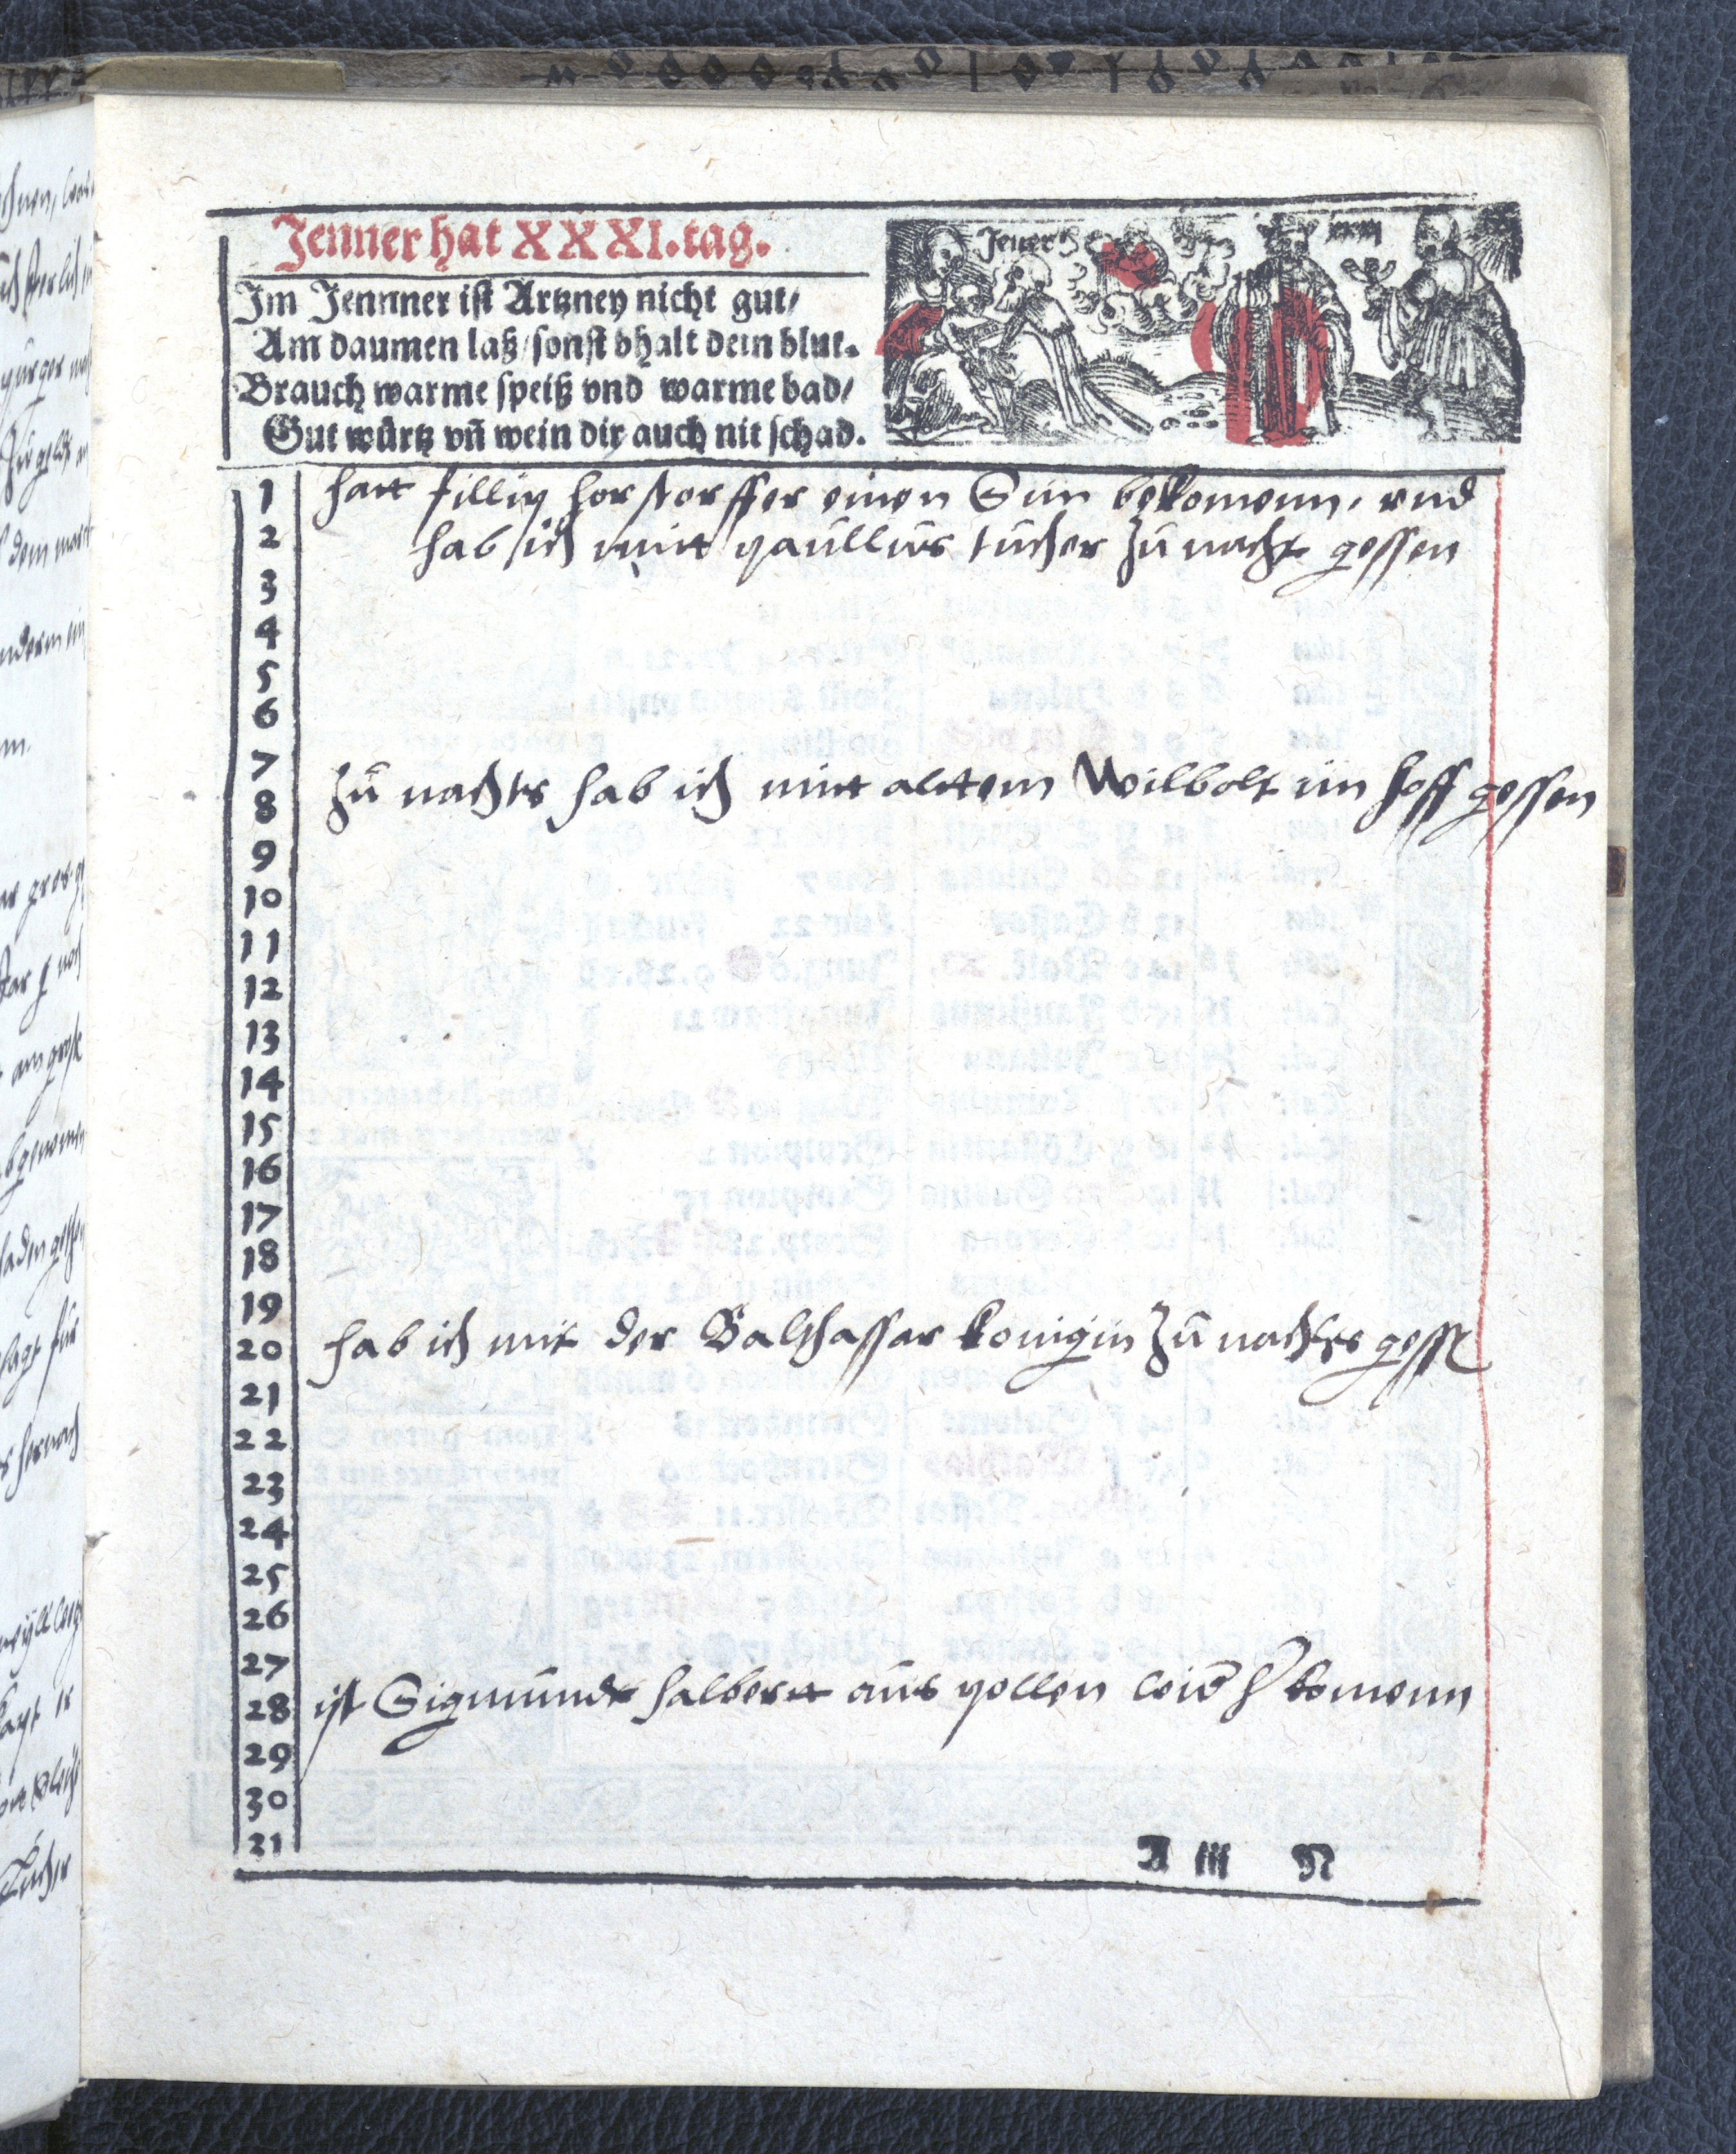 Jenner hat XXXI. tag.
Jener
Im Jennner ist Artzney nicht gut/
Am daumen laß/sonst bhalt dein blut.
Brauch warme speiß vnd warme bad/
Gut würtz vñ wein dir auch nit schad.
1 hatt fillip horstorffer einen Sun bekomenn, vnd
2 hab ich mitt paullus tucher zu nacht gessen
3
4
5
6
7
8 zu nachts hab ich mitt altem Wilbolt im hoff gessen
9
10
11
12
13
14
15
16
17
18
19
20 hab ich mit der Balthassar konigin zu nachts gessen
21
22
23
24
25
26
27
28 ist Sigmundt halbertt aus pollen komenn
29
30
31
A iii